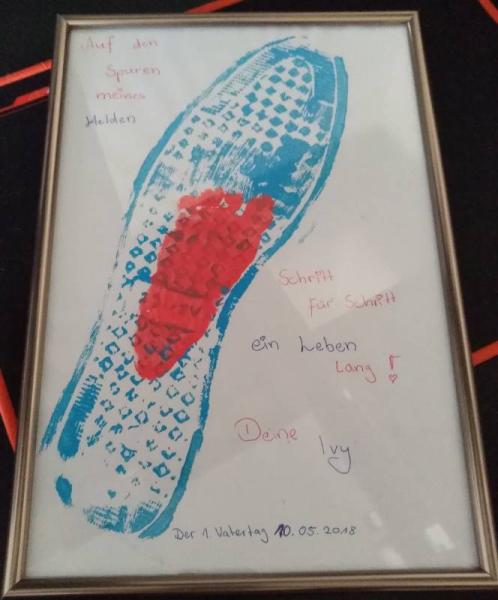 Auf den
Spuren
meines
Helden
Schritt
für Schritt
ein Leben
Lang !
Deine
Ivy
Der 1. Vatertag 10.05.2018